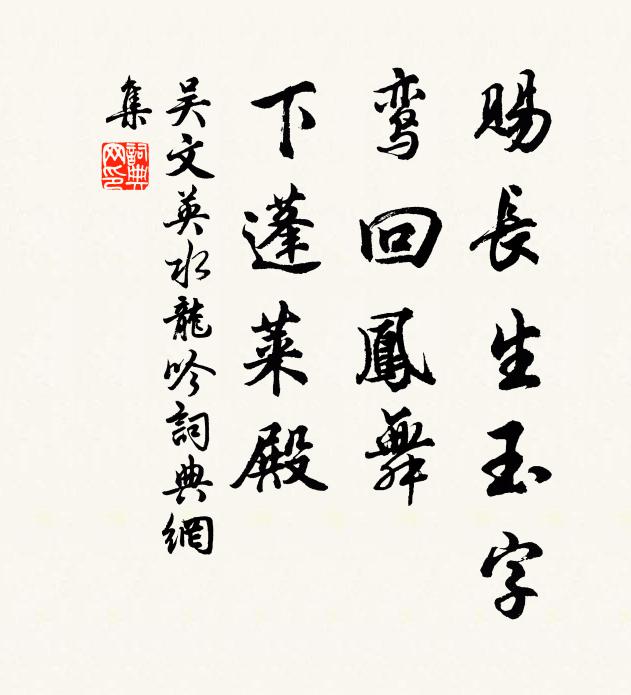 賜長生玉字
鸾回鳳舞
下蓬萊殿
吴文英水龍吟詞典網
集
詞典
网印